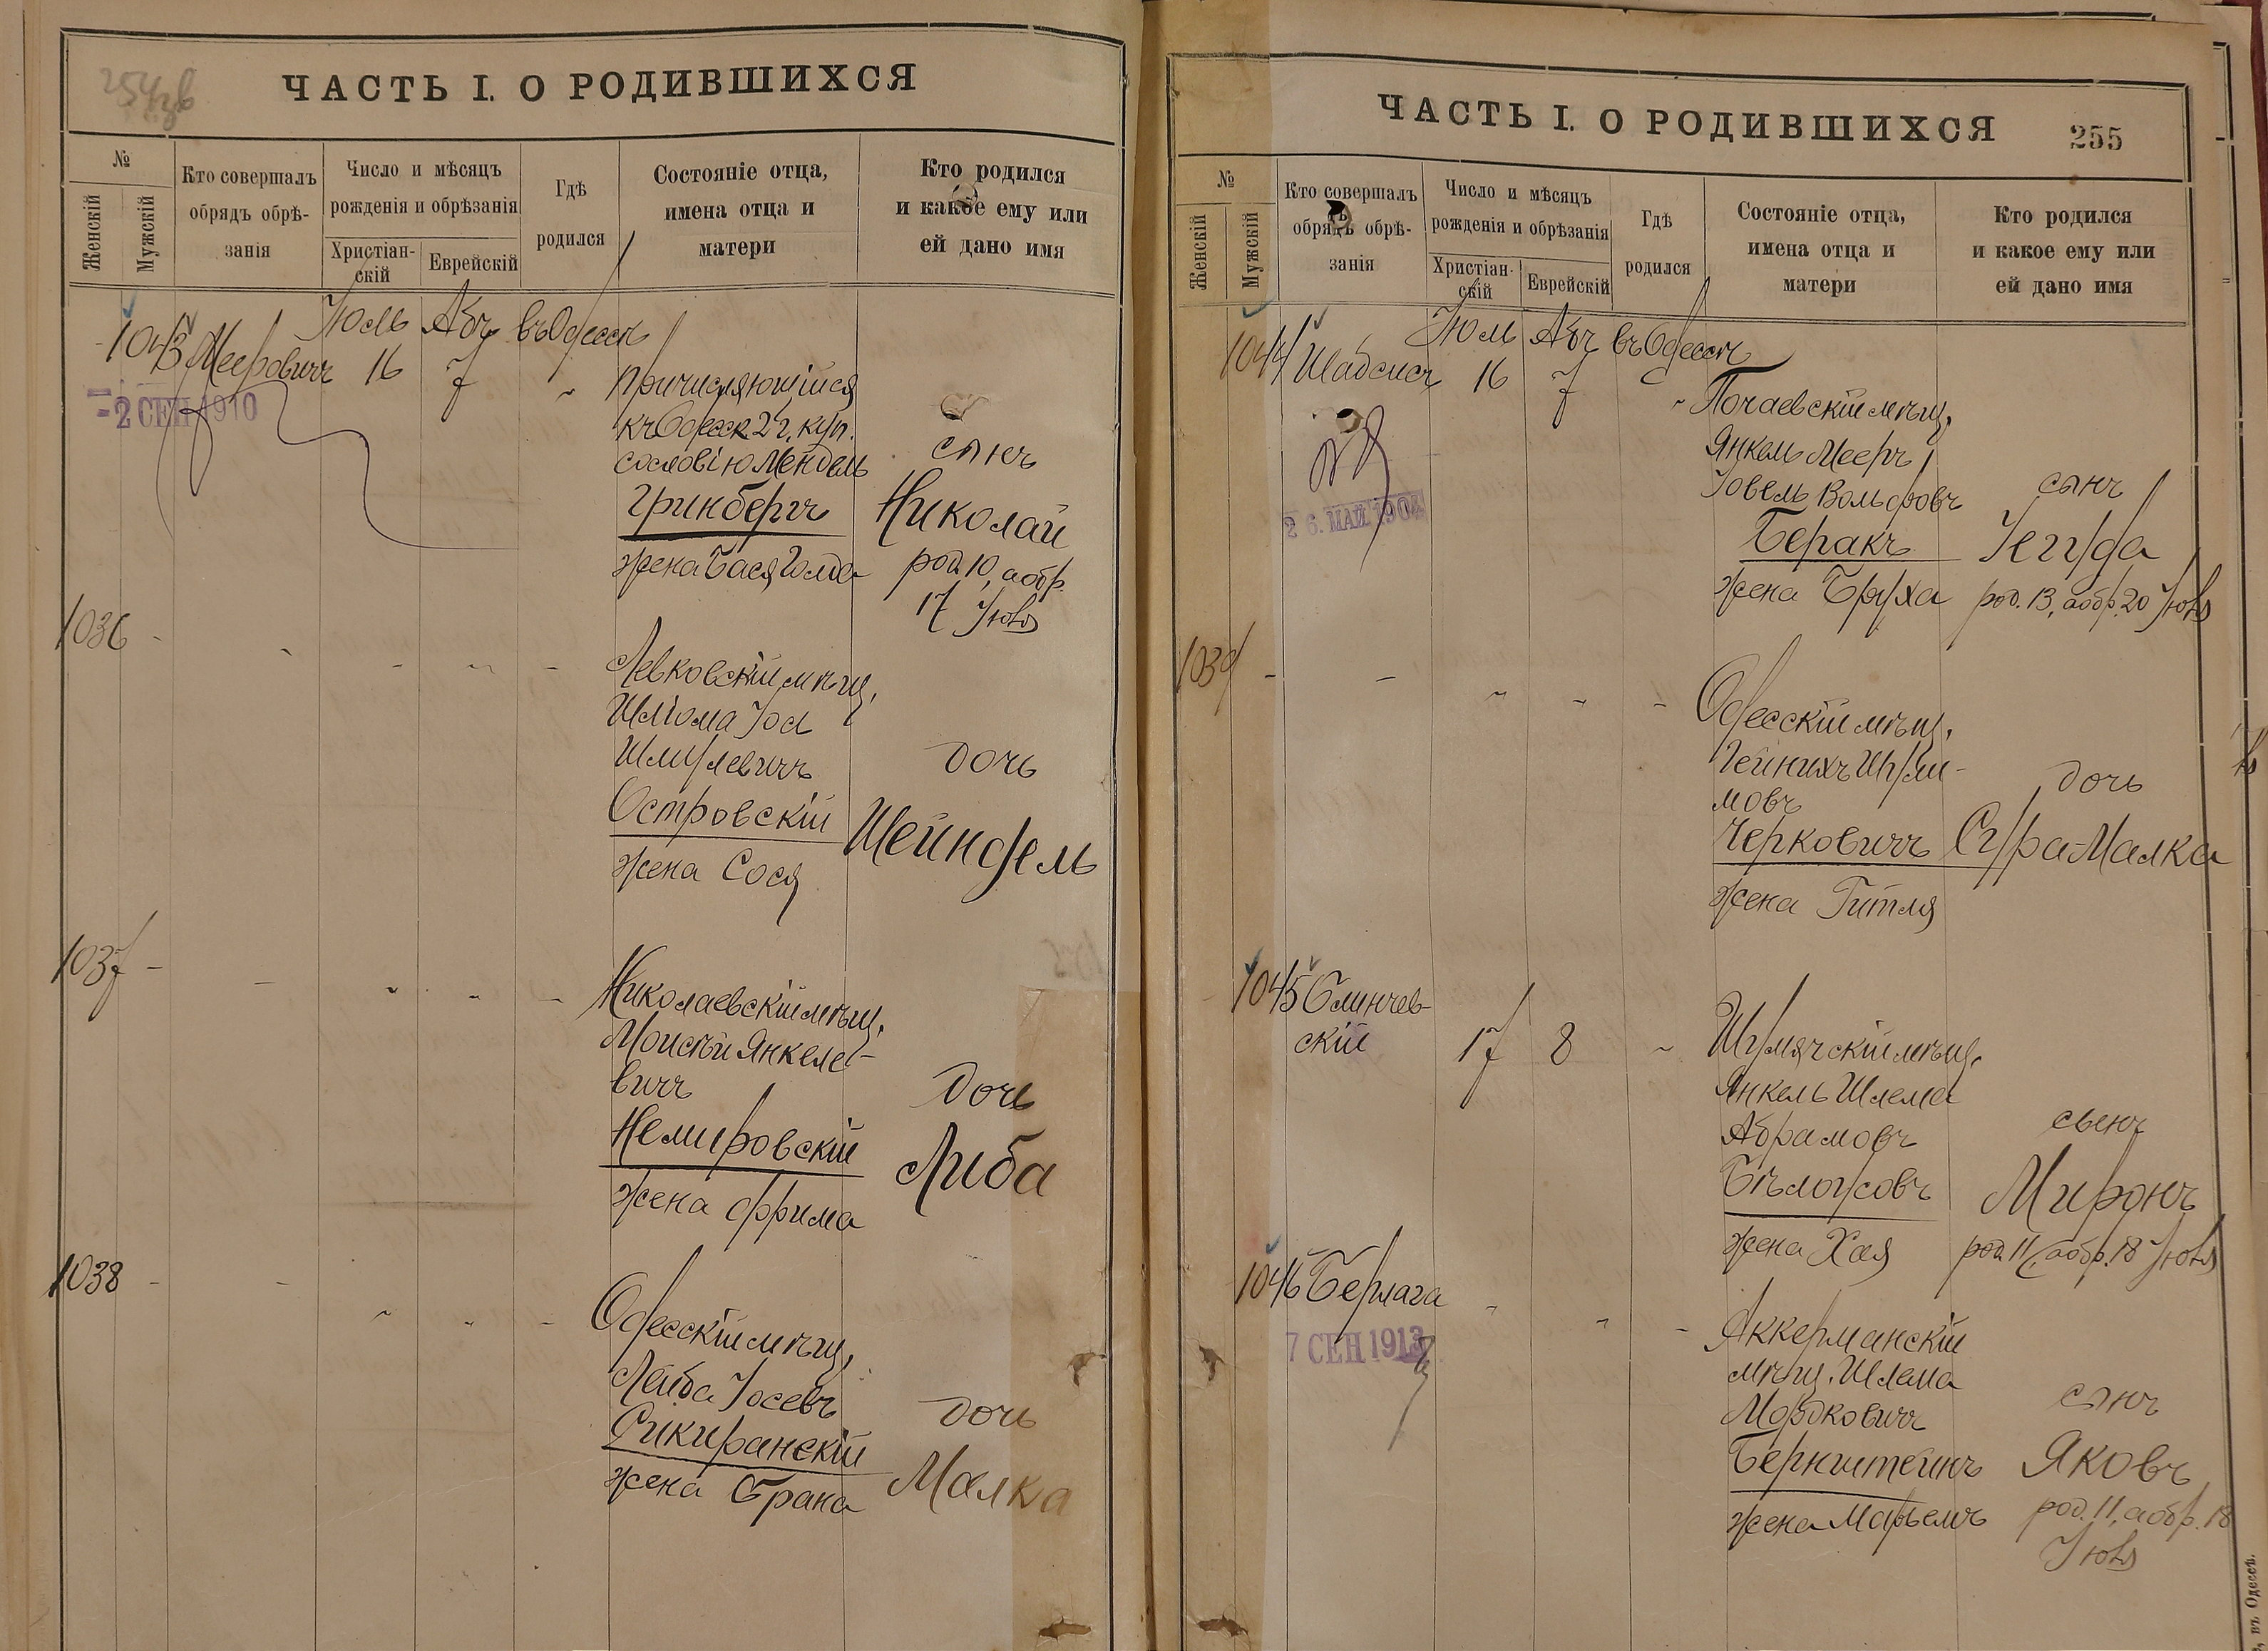 ЧАСТЬ I. О РОДИВШИХСЯ
№
Женскій
Мужскій
Кто совершалъ
обрядъ обрѣ-
занія
Число и мѣсяцъ
рожденія и обрѣзанія
Христіан-
скій
Еврейскій
Гдѣ
родился
Состояніе отца,
имена отца и
матери
Кто родился
и какое ему или
ей дано имя
1043 Мееровичъ
Іюль Абъ въ Одессѣ
16 7
-2 СЕН 1910
причисляющійся
къ Одесск. 2 г. куп.
сословію Мендель
Гринбергъ
жена Бася Голда
сынъ
Николай
род. 10, а обр.
17 Іюля
1036
Левковскій мѣщ.
Шліома Іос
Шмулевичъ
Островскій
жена Сося
дочь
Шейндель
1037
Николаевскій мѣщ.
Моисѣй Янкеле-
вичъ
Немировскій
жена Фрима
дочь
Либа
1038
Одесскій мѣщ.
Лейба Іосевъ
жена Брана
дочь
Малка
ЧАСТЬ I. О РОДИВШИХСЯ
255
№
Женскій
Мужскій
Кто совершалъ
обрядъ обрѣ-
занія
Число и мѣсяцъ
рожденія и обрѣзанія
Христіан-
скій
Еврейскій
Гдѣ
родился
Состояніе отца,
имена отца и
матери
Кто родился
и какое ему или
ей дано имя
1044 Шабсисъ
Іюль Абъ въ Одессѣ
16 7
26. МАЙ 1904
Почаевскій мѣщ.
Янкель Мееръ
Іовель Вольфовъ
Беракъ
жена Бруха
сынъ
Іегуда
род. 13, а обр. 20 Іюля
1039
Одесскій мѣщ.
Гейнихъ Шули-
мовъ
Черковичъ
жена Гитля
дочь
Сура-Малка
1045 Слинчев-
скій
17 8
Шумячскій мѣщ.
Янкель Шлема
Абрамовъ
Бѣлоусовъ
жена Хая
сынъ
Миронъ
род. 11, а обр. 18 Іюля
1046 Берлага
7 СЕН 1913
Аккерманскій
мѣщ. Шлема
Мордковичъ
Бернштейнъ
жена Марьемъ
сынъ
Яковъ
род. 11, а обр. 18
Іюля
въ Одессѣ.